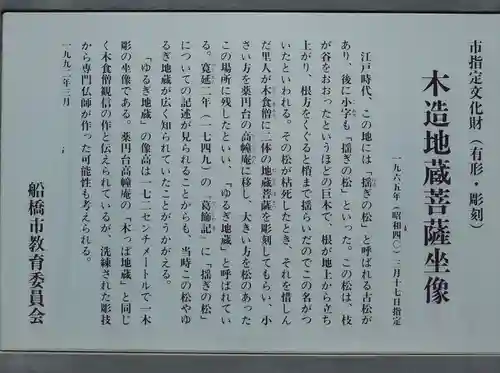 市指定文化財（有形・彫刻）
木造地蔵菩薩坐像
一九六五年（昭和四〇）三月十七日指定
江戸時代、この地には「揺ぎの松」と呼ばれる古松が
あり、後に小字も「揺ぎの松」といった。この松は、枝
が谷をおおったというほどの巨木で、根が地上から立ち
上がり、根方をくぐると梢まで揺らいだのでこの名がつ
いたといわれる。その松が枯死したとき、それを惜しん
だ里人が木食僧に二体の地蔵菩薩を彫刻してもらい、小
さい方を薬円台の高幢庵に移し、大きい方を松のあった
この場所に残したといい、「ゆるぎ地蔵」と呼ばれてい
る。寛延二年（一七四九）の「葛飾記」に「揺ぎの松」
についての記述が見られることからも、当時この松やゆ
るぎ地蔵が広く知られていたことがうかがえる。
「ゆるぎ地蔵」の像高は一七二センチメートルで一木
彫の坐像である。薬円台高幢庵の「木っぱ地蔵」と同じ
く木食僧観信の作と伝えられているが、洗練された彫技
から専門仏師が作った可能性も考えられる。
一九九二年三月
船橋市教育委員会